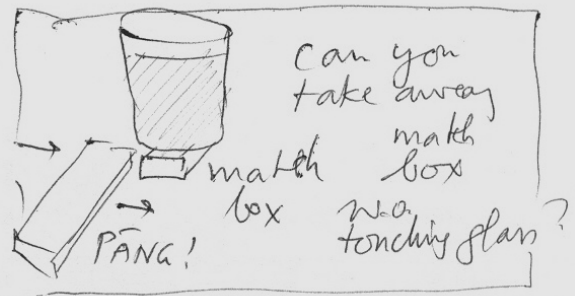 can you
take away
match
box
w.o.
touching glass?
match
box
PÃNG!